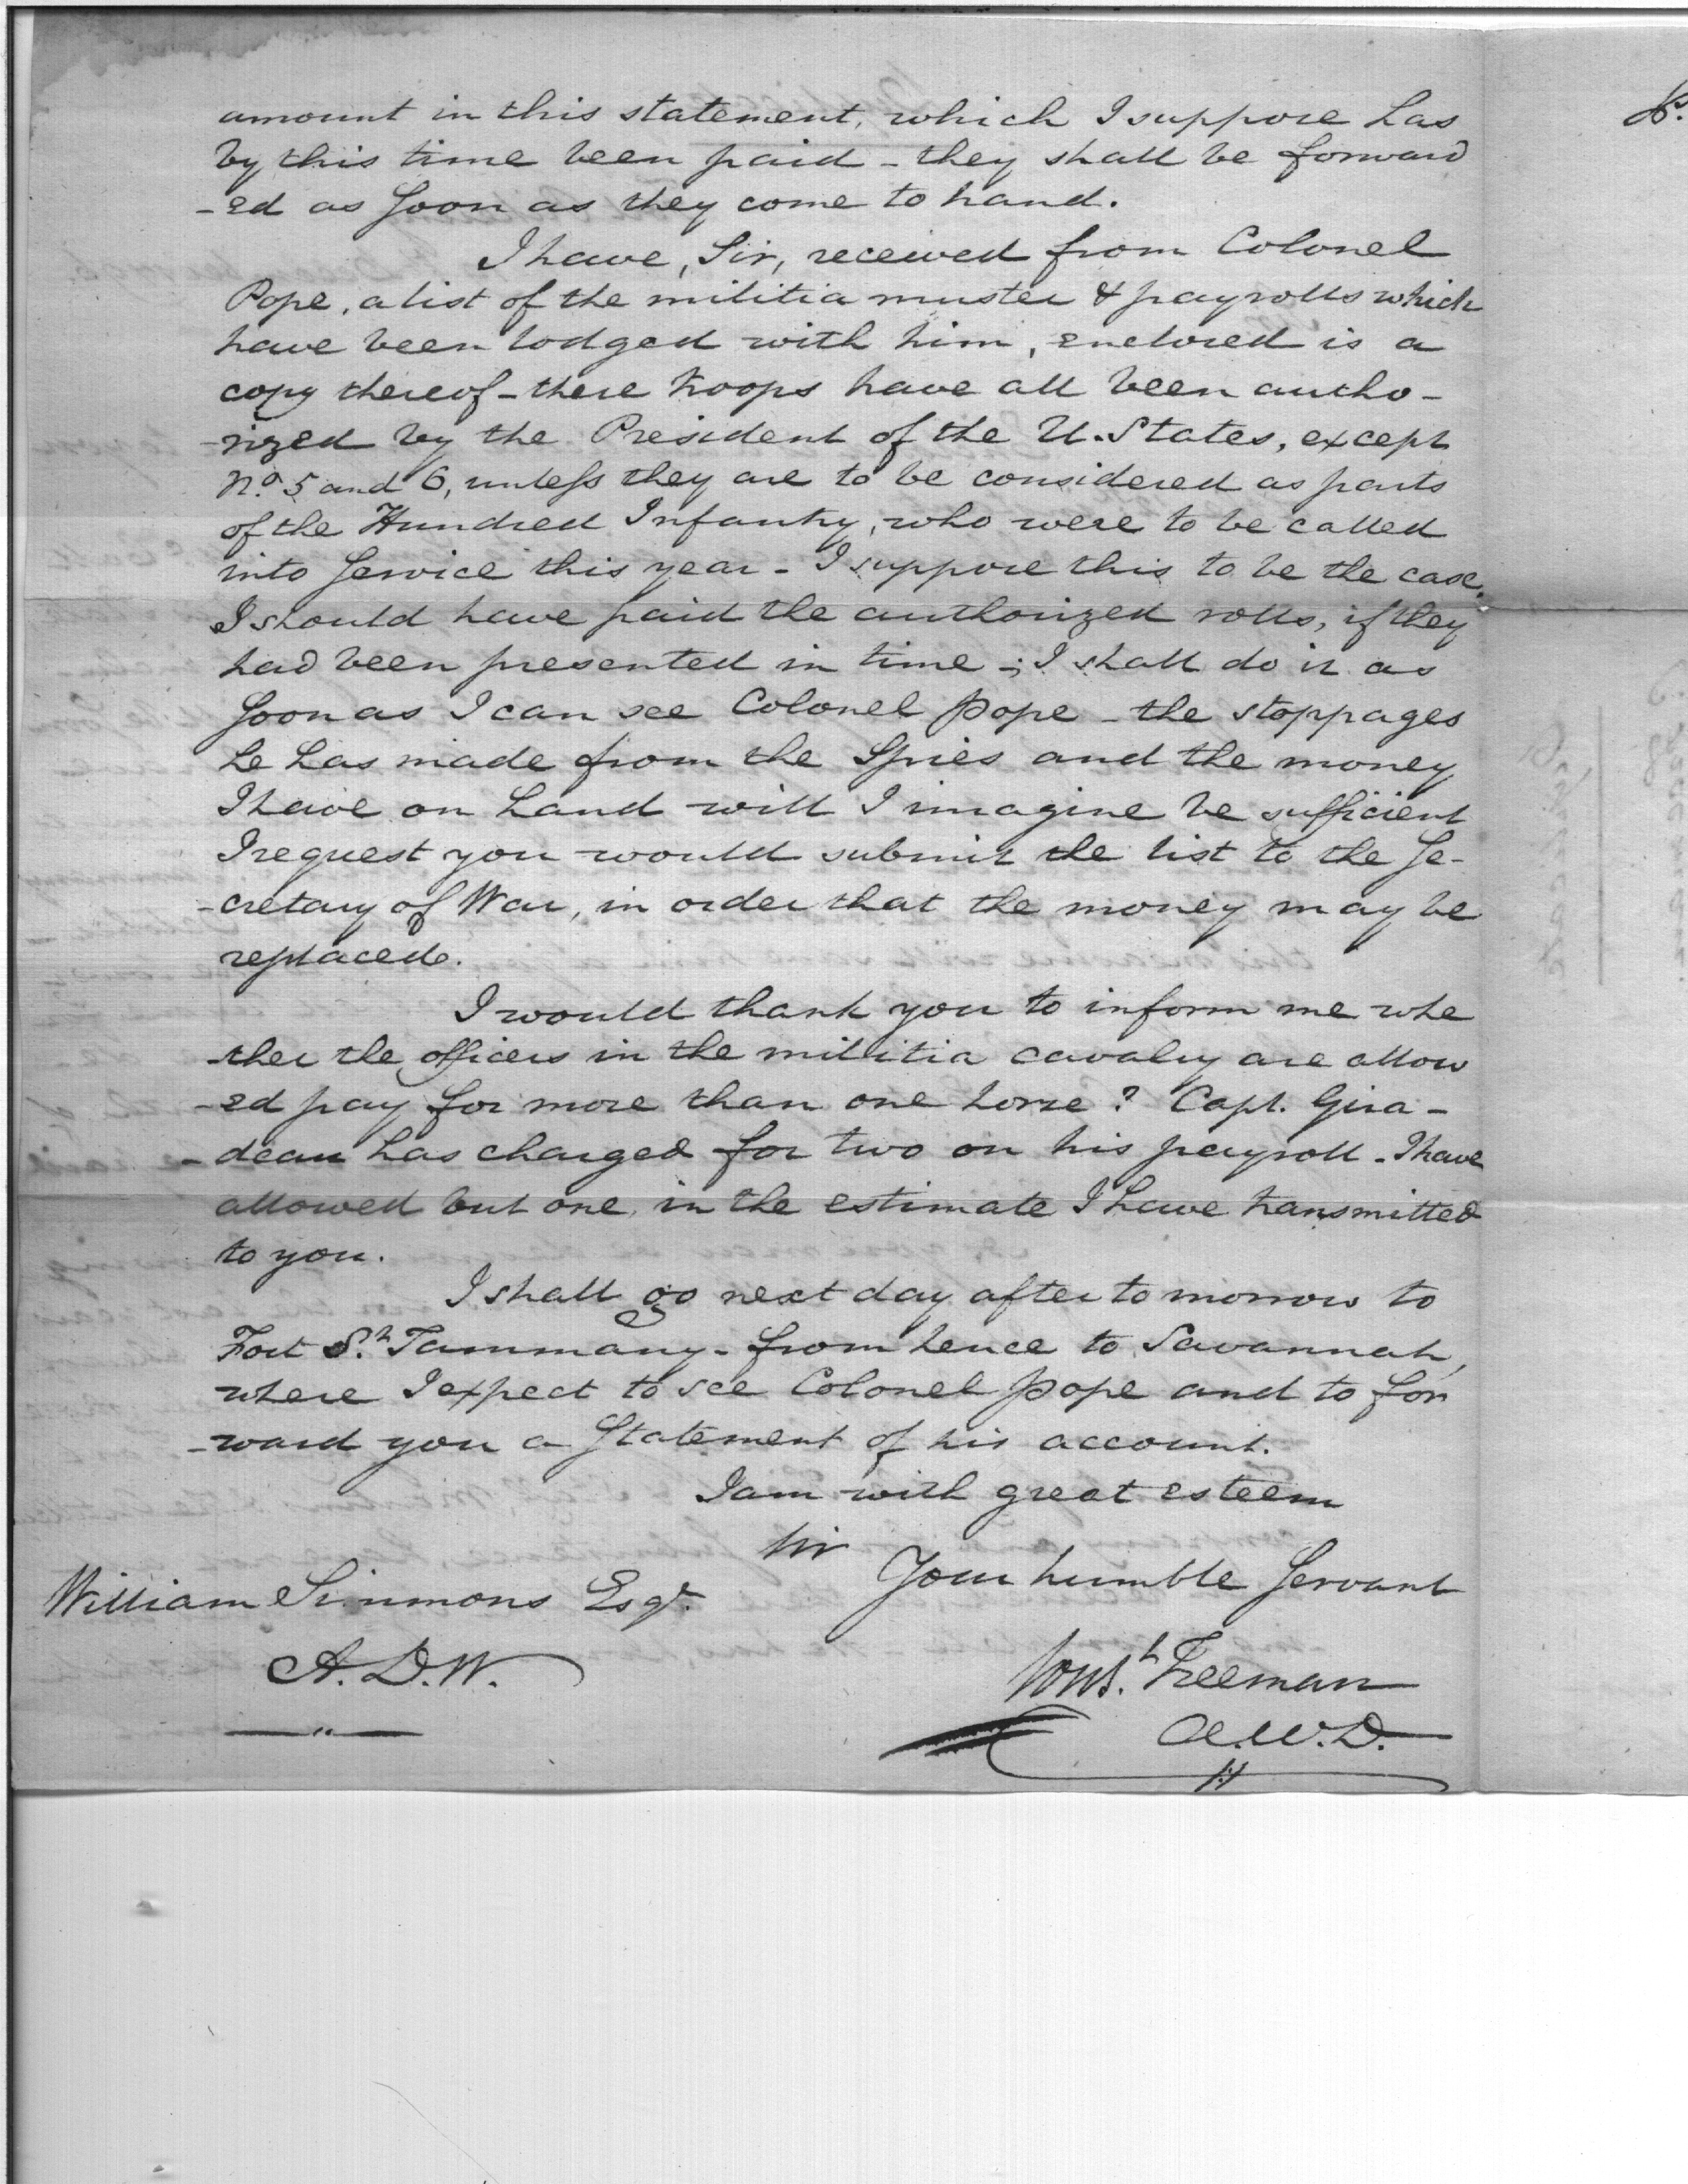 amount in this statement, which I suppose has
by this time been paid - they shall be forward
-ed as soon as they come to hand.
I have, Sir, received from Colonel
Pope, a list of the militia muster & payrolls which
have been lodged with him, enclosed is a
copy thereof - these troops have all been autho-
-rized by the President of the U. States, except
No. 5 and 6, unless they are to be considered as parts
of the Hundred Infantry, who were to be called
into service this year - I suppose this to be the case.
I should have paid the authorized rolls, if they
had been presented in time -; I shall do it as
soon as I can see Colonel Pope - the stoppages
he has made from the Spies and the money
I have on hand will I imagine be sufficient
I request you would submit the list to the Se-
-cretary of War, in order that the money may be
replaced.
I would thank you to inform me whe
-ther the officers in the militia cavalry are allow
-ed pay for more than one horse? Capt. Gira-
-deau has charged for two on his payroll - I have
allowed but one in the estimate I have transmitted
to you.
I shall go next day after to morrow to
Fort St. Tammany - from hence to Savannah,
where I expect to see Colonel Pope and to for
-ward you a Statement of his account.
I am with great esteem
Sir
Your humble Servant
William Simmons Esqr.
A.D.W.
Const. Freeman
A.W.D.